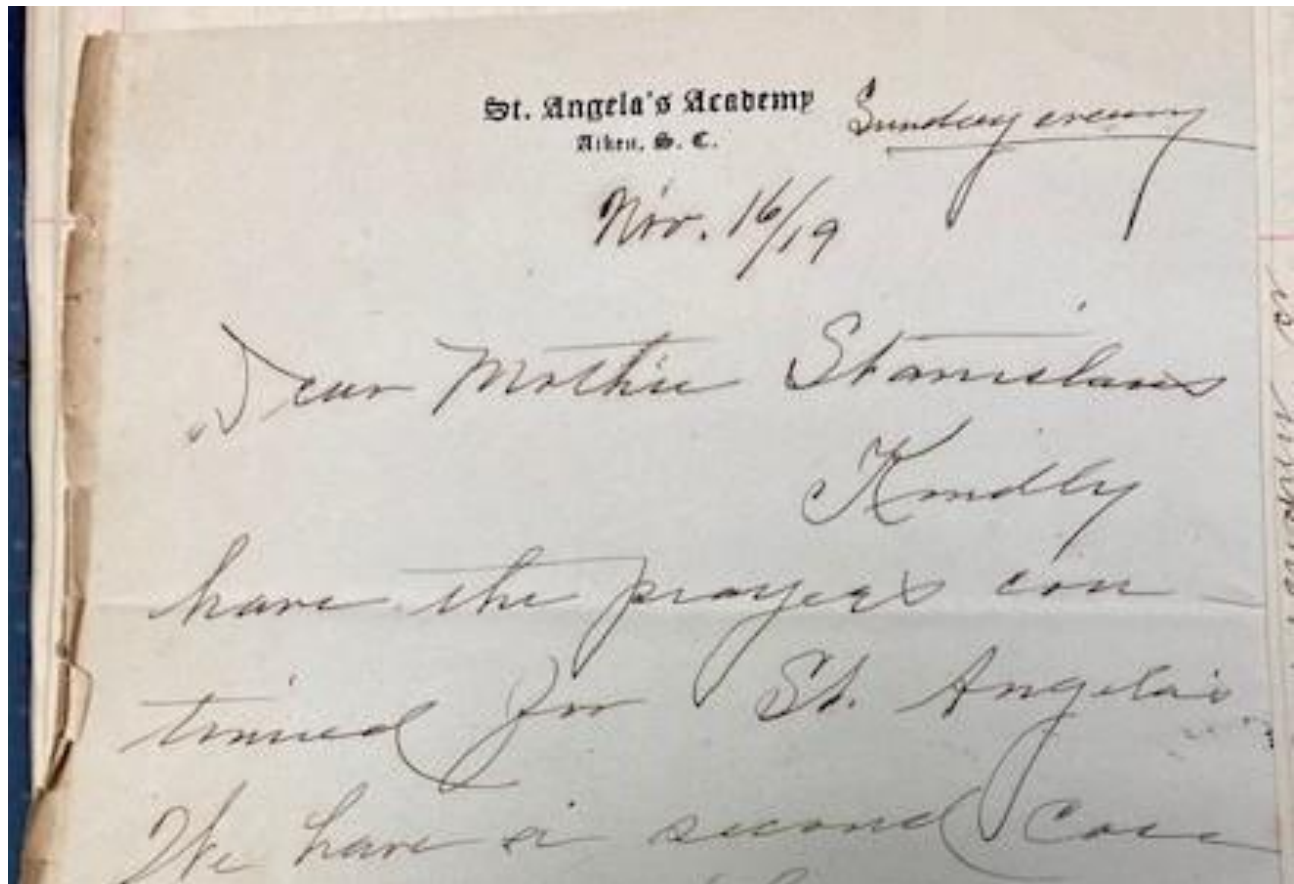 St. Angela's Academy
Aiken, S. C.
Sunday evening
Nov. 16/19
Dear Mother Stanislaus
Kindly
have the prayers con-
tinued for St. Angela's
We have a second case